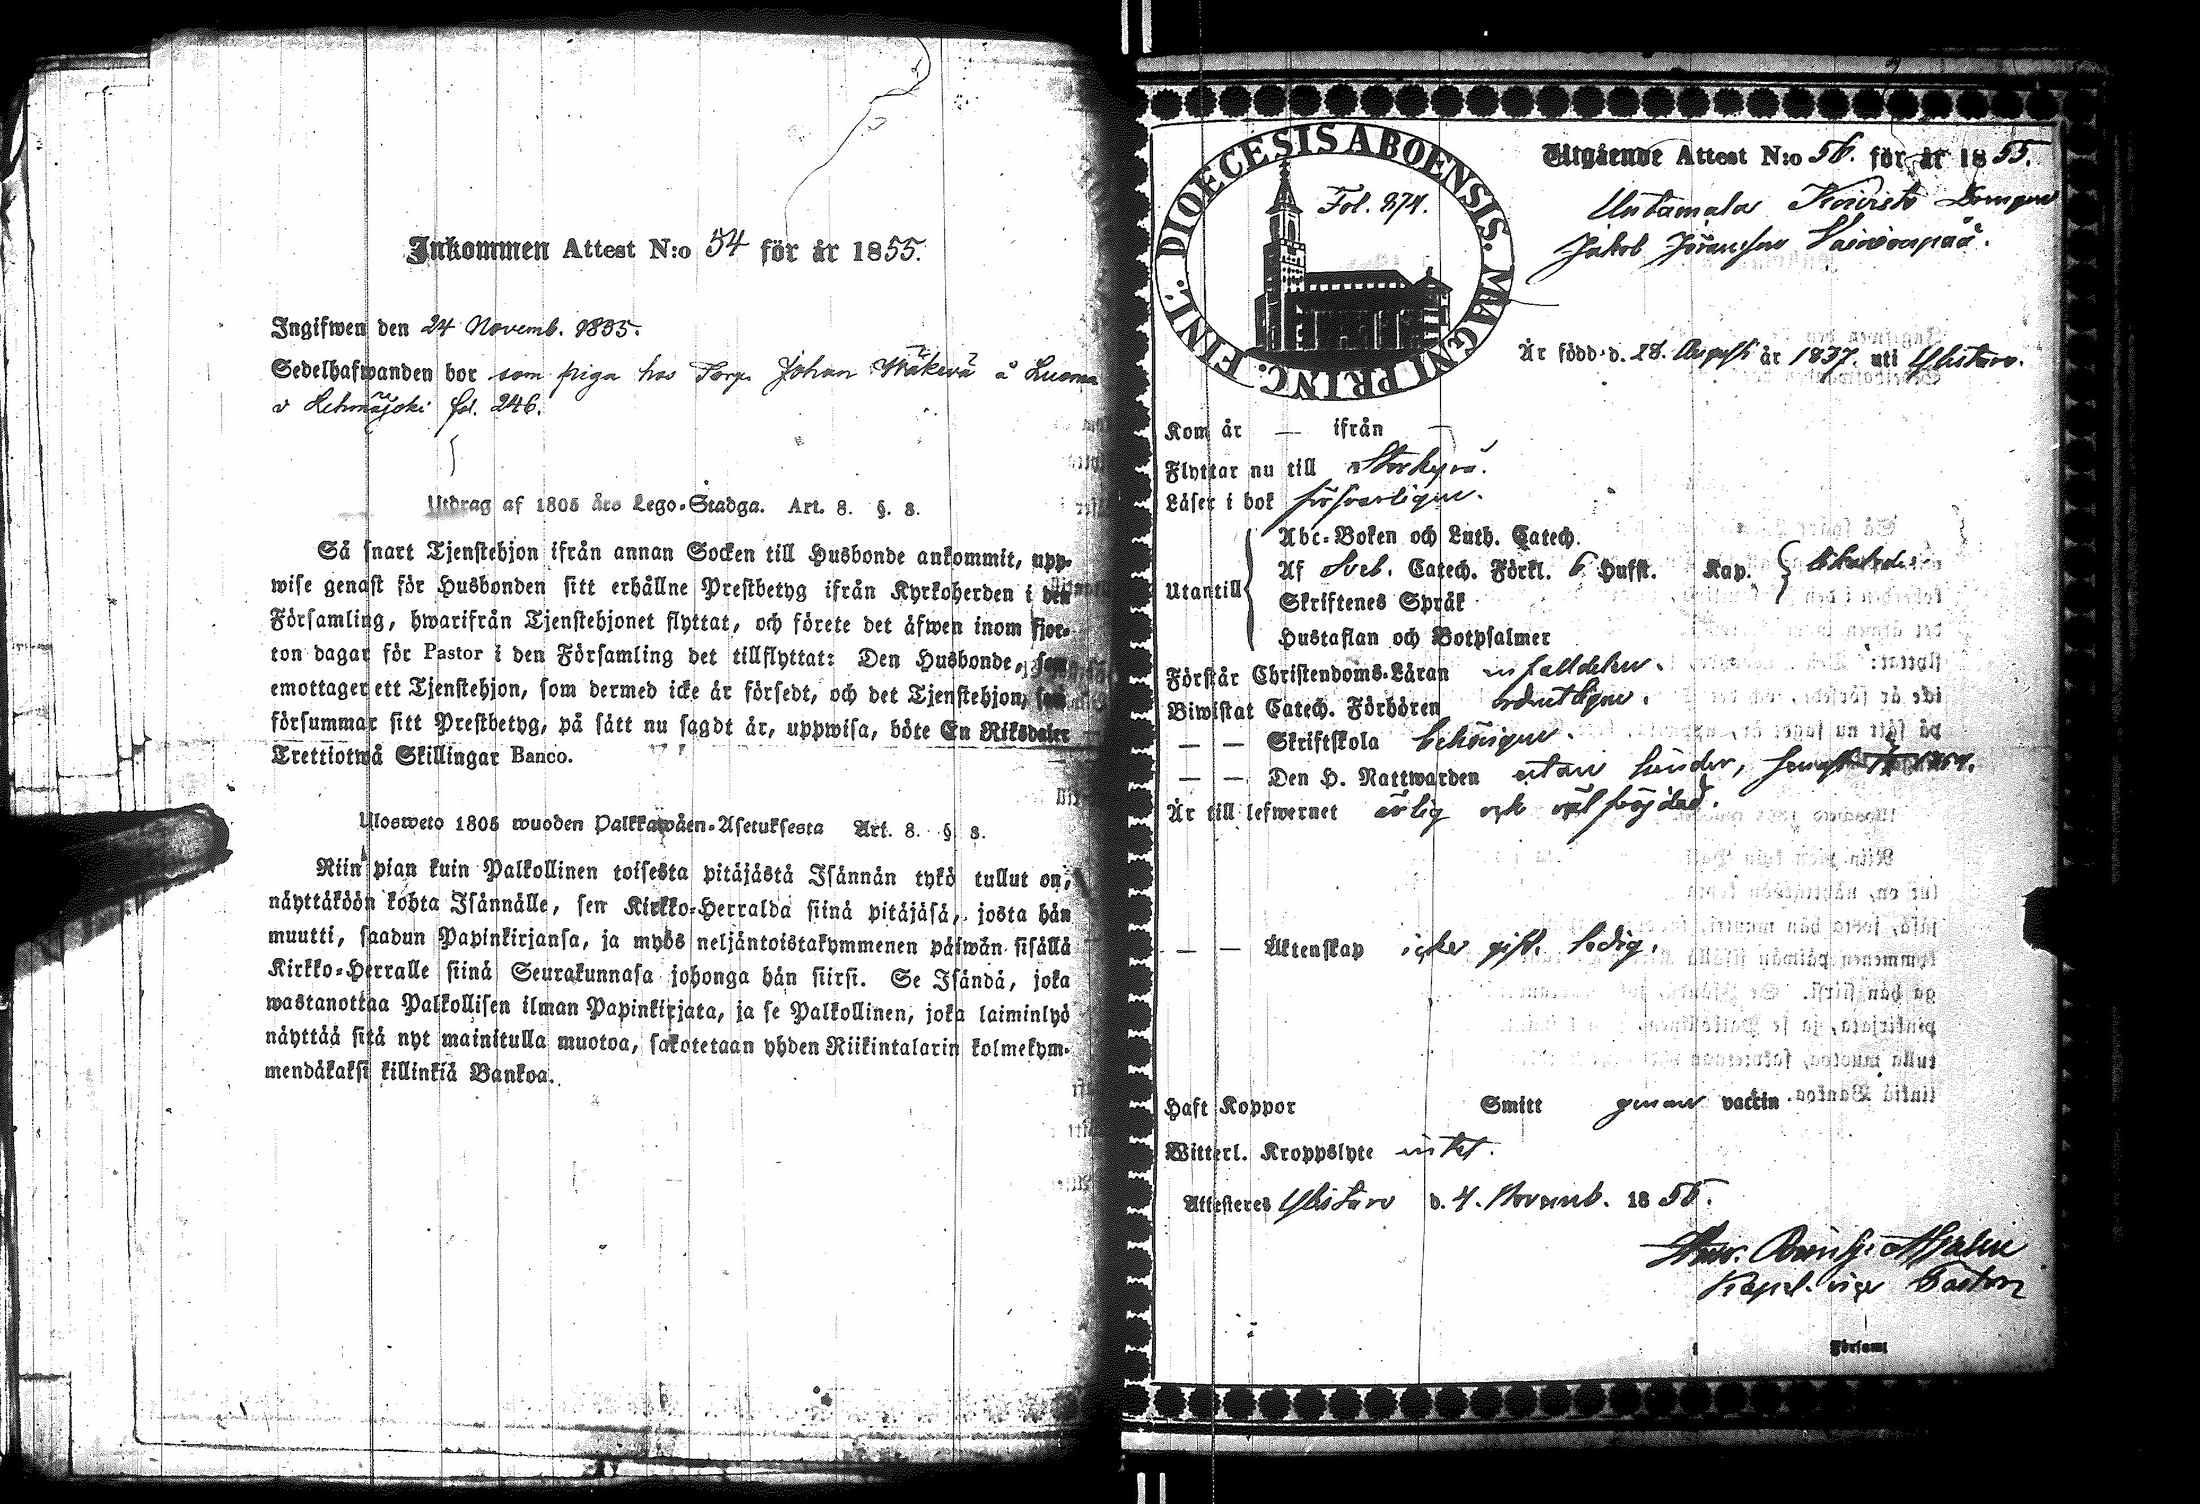 Inkommen Attest N:o 54 för år 1855.
Ingifwen den 24 Novemb. 1855.
Sedelhafwanden bor som piga hos Torp. Johan Wäkevä å Luoma
v Lehmäjoki fol. 246.
Utdrag af 1805 års Lego-Stadga. Art. 8. §. 8.
Så snart Tjenstehjon ifrån annan Socken till Husbonde ankommit, upp-
wise genast för Husbonden sitt erhållne Prestbetyg ifrån Kyrkoherden i den
Församling, hwarifrån Tjenstehjonet flyttat, och förete det äfwen inom fjor-
ton dagar för Pastor i den Församling det tillflyttat: Den Husbonde, som
emottager ett Tjenstehjon, som dermed icke är försedt, och det Tjenstehjon, som
försummar sitt Prestbetyg, på sätt nu sagdt är, uppwisa, böte En Riksdaler
Trettiotwå Skillingar Banco.
Ulosweto 1805 wuoden Palkkawäen-Asetuksesta Art. 8. §. 8.
Niin pian kuin Palkollinen toisesta pitäjästä Isännän tykö tullut on,
näyttäköön kohta Isännälle, sen Kirkko-Herralda siinä pitäjäsä, josta hän
muutti, saadun Papinkirjansa, ja myös neljäntoistakymmenen päiwän sisällä
Kirkko-Herralle siinä Seurakunnasa johonga hän siirsi. Se Isändä, joka
wastanottaa Palkollisen ilman Papinkirjata, ja se Palkollinen, joka laiminlyö
näyttää sitä nyt mainitulla muotoa, sakotetaan yhden Riikintalarin kolmekym-
mendäkaksi killinkiä Bankoa.
DIOECESIS ABOENSIS. MAGNI PRINC. FINL.
Fol. 874.
Utgående Attest N:o 56. för år 1855.
Untamala Koivisto Drengen
Jakob Jöransson
Är född d. 28. Augusti år 1837. uti Ylistaro.
Kom år — ifrån —
Flyttar nu till Storkyro.
Läser i bok försvarligen.
Utantill
Abc-Boken och Luth. Catech.
Af Sveb. Catech. Förkl. 6 Hufst. Kap.
Skriftenes Språk
Hustaflan och Botpsalmer
Förstår Christendoms-Läran enfalldeliga.
Biwistat Catech. Förhören ordentligen.
— — Skriftskola behörigen.
— — Den H. Nattwarden utan hinder, senast
Är till lefwernet ärlig och välfrejdad.
— — Äktenskap icke gift. ledig.
Haft Koppor Smitt genom vackin
Witterl. Kroppslyte intet.
Attesteres Ylistaro d. 4. Novemb. 1855.
Kapel. vice Pastor
Församl